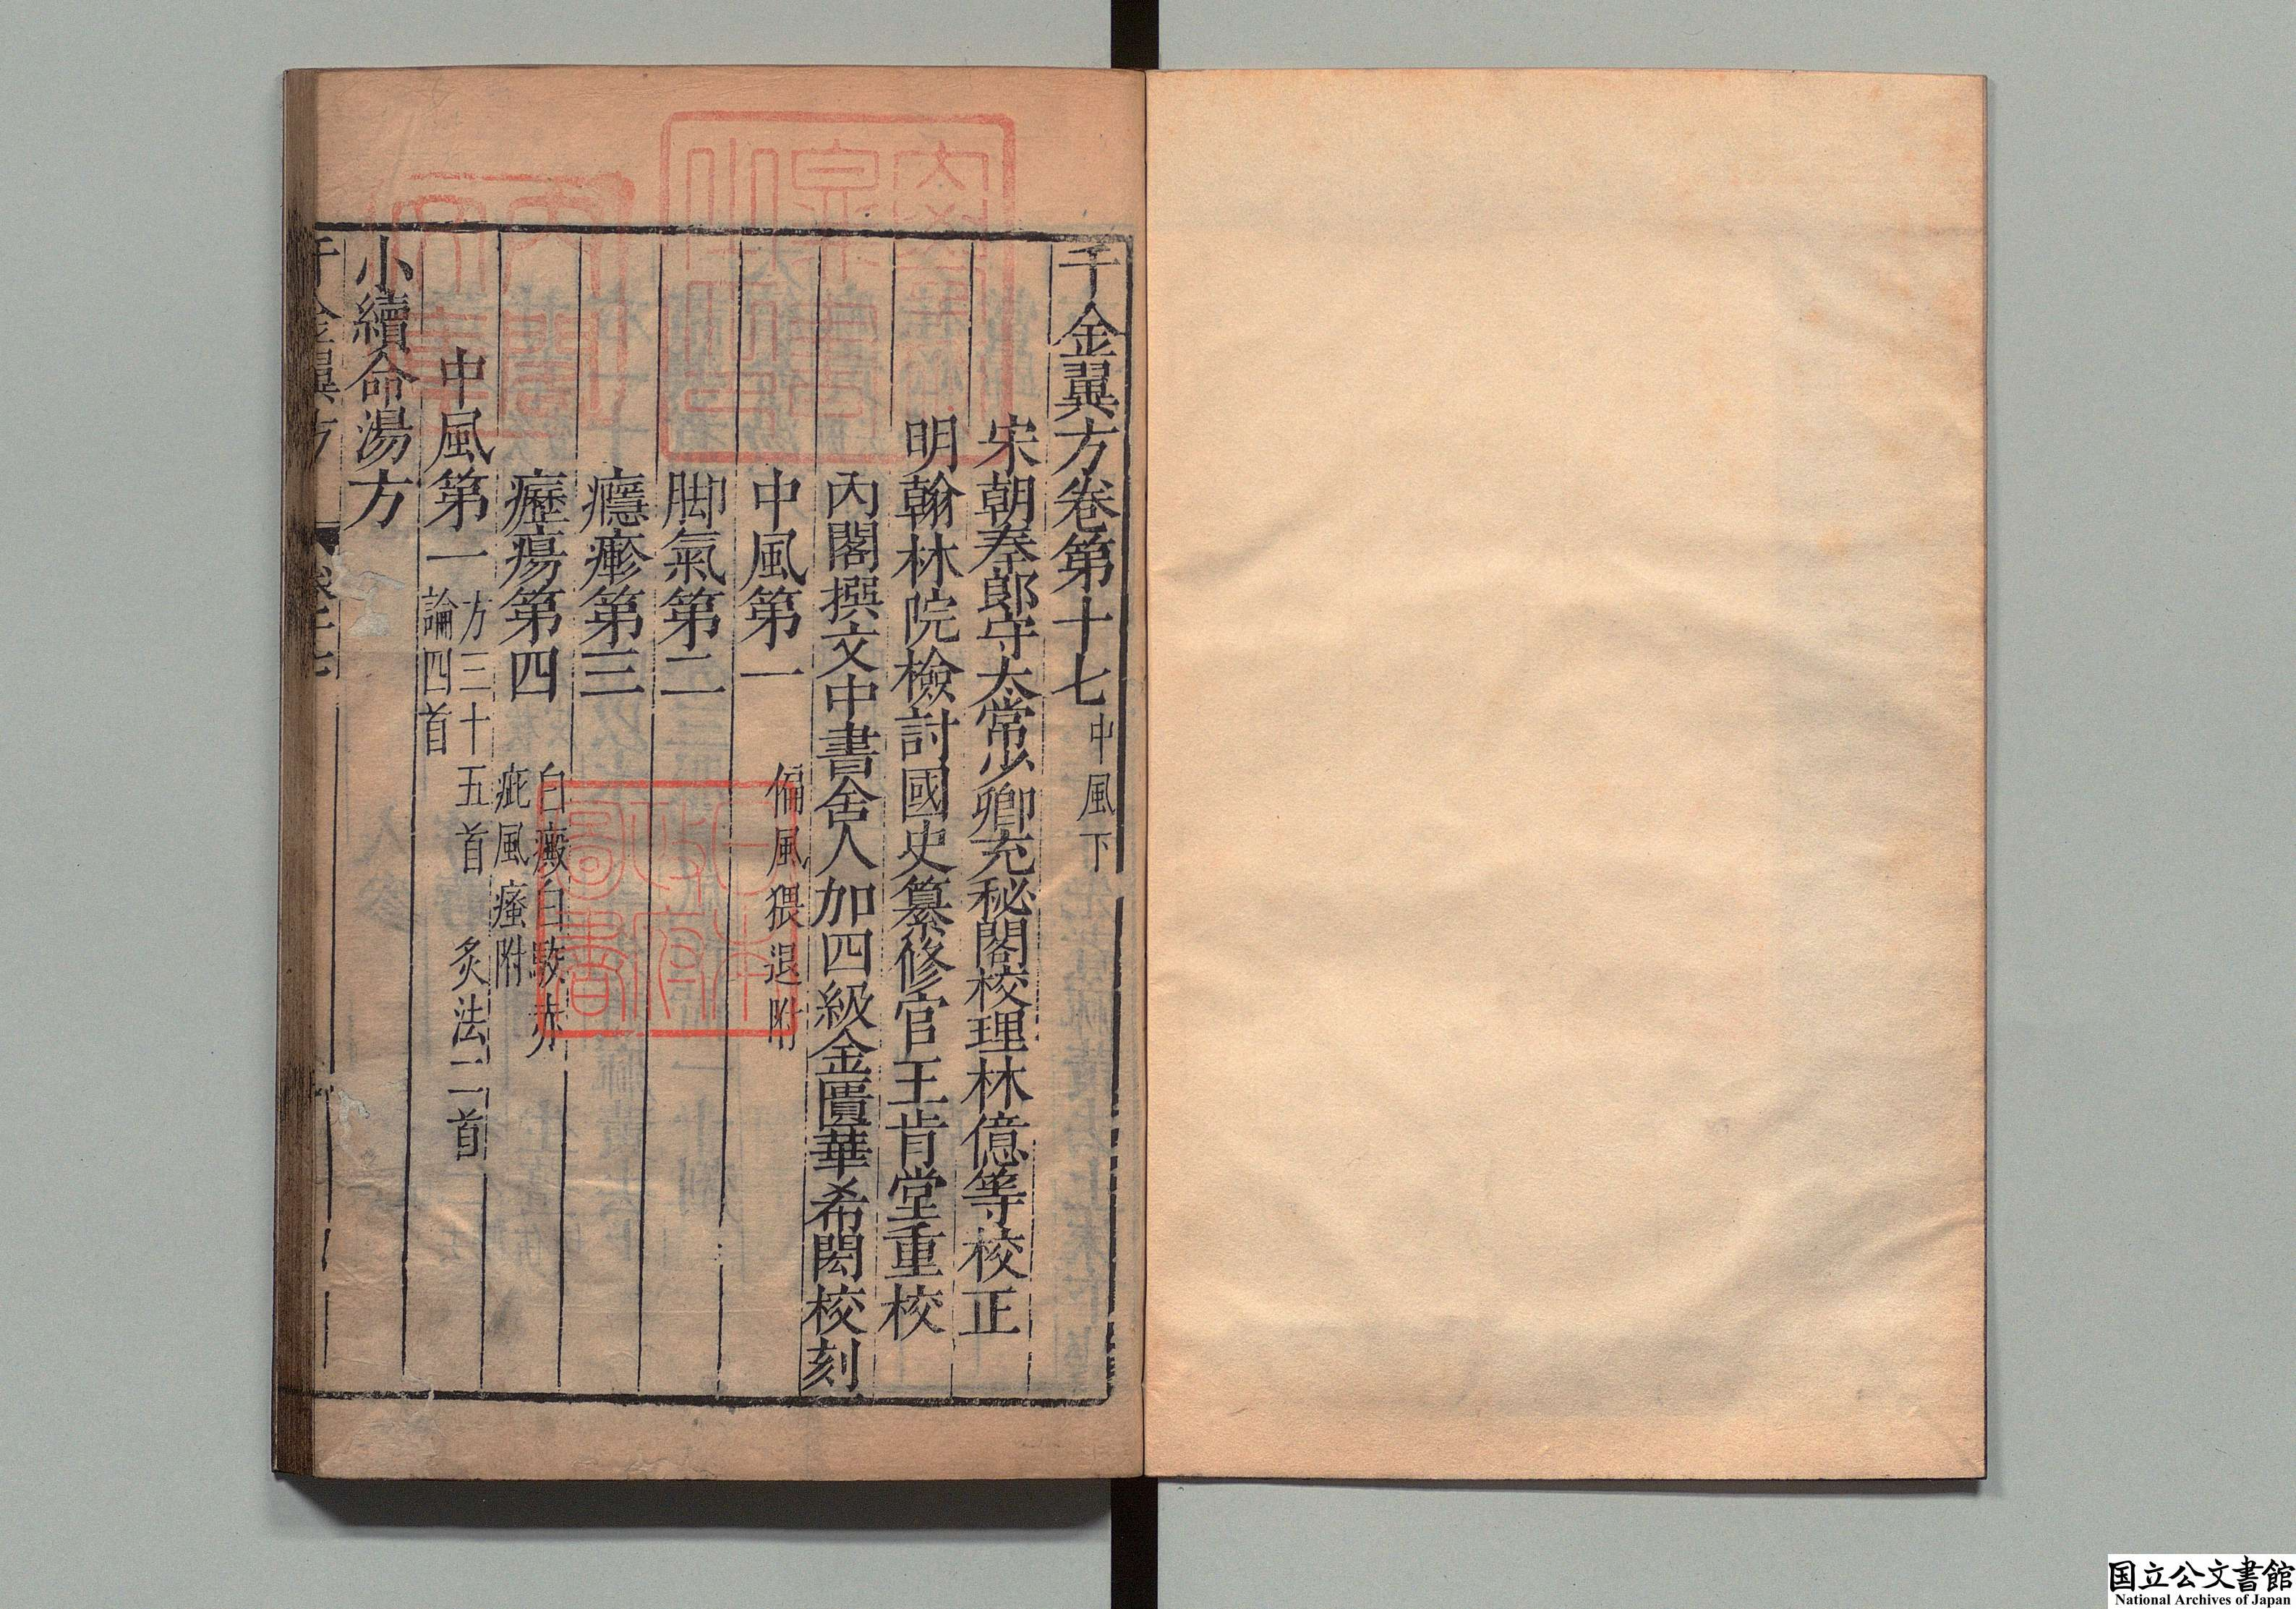 千金翼方卷第十七 中風下
宋朝奉郎守太常少卿充秘閣校理林億等校正
明翰林院檢討國史纂修官王肯堂重校
內閣撰文中書舍人加四級金匱華希閎校刻
中風第一 偏風猥退附
脚氣第二
癮瘮第三
癧瘍第四 白癜白駮赤
疵風瘙附
中風第一 方三十五首 灸法二首
論四首
小續命湯方
千金翼方 卷十七
国立公文書館
National Archives of Japan